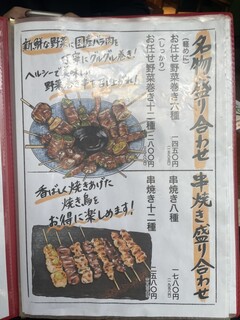 名物盛り合わせ
（軽めに）
お任せ野菜巻き六種
一四五〇円
（しっかり）
お任せ野菜巻き十二種
二八〇〇円
串焼き盛り合わせ
串焼き八種
一七八〇円
串焼き十二種
二五八〇円
新鮮な野菜に国産バラ肉を
クルクル巻き!
ヘルシーで
野菜
香ばしく焼きあげた
焼き鳥を
お得に楽しめます!